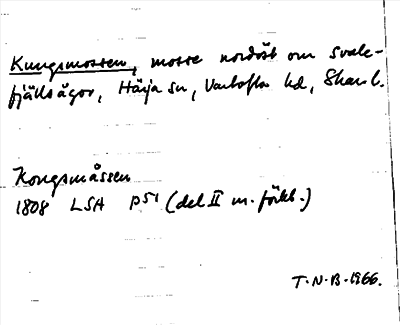 Kungsmossen, mosse nordöst om Svale-
fjällsågor, Härja sn, Vartofta hd, Skar. l.
Kongsmåssen
1808 LSA P51 (del II m. förkl.)
T.N.B. 1966.